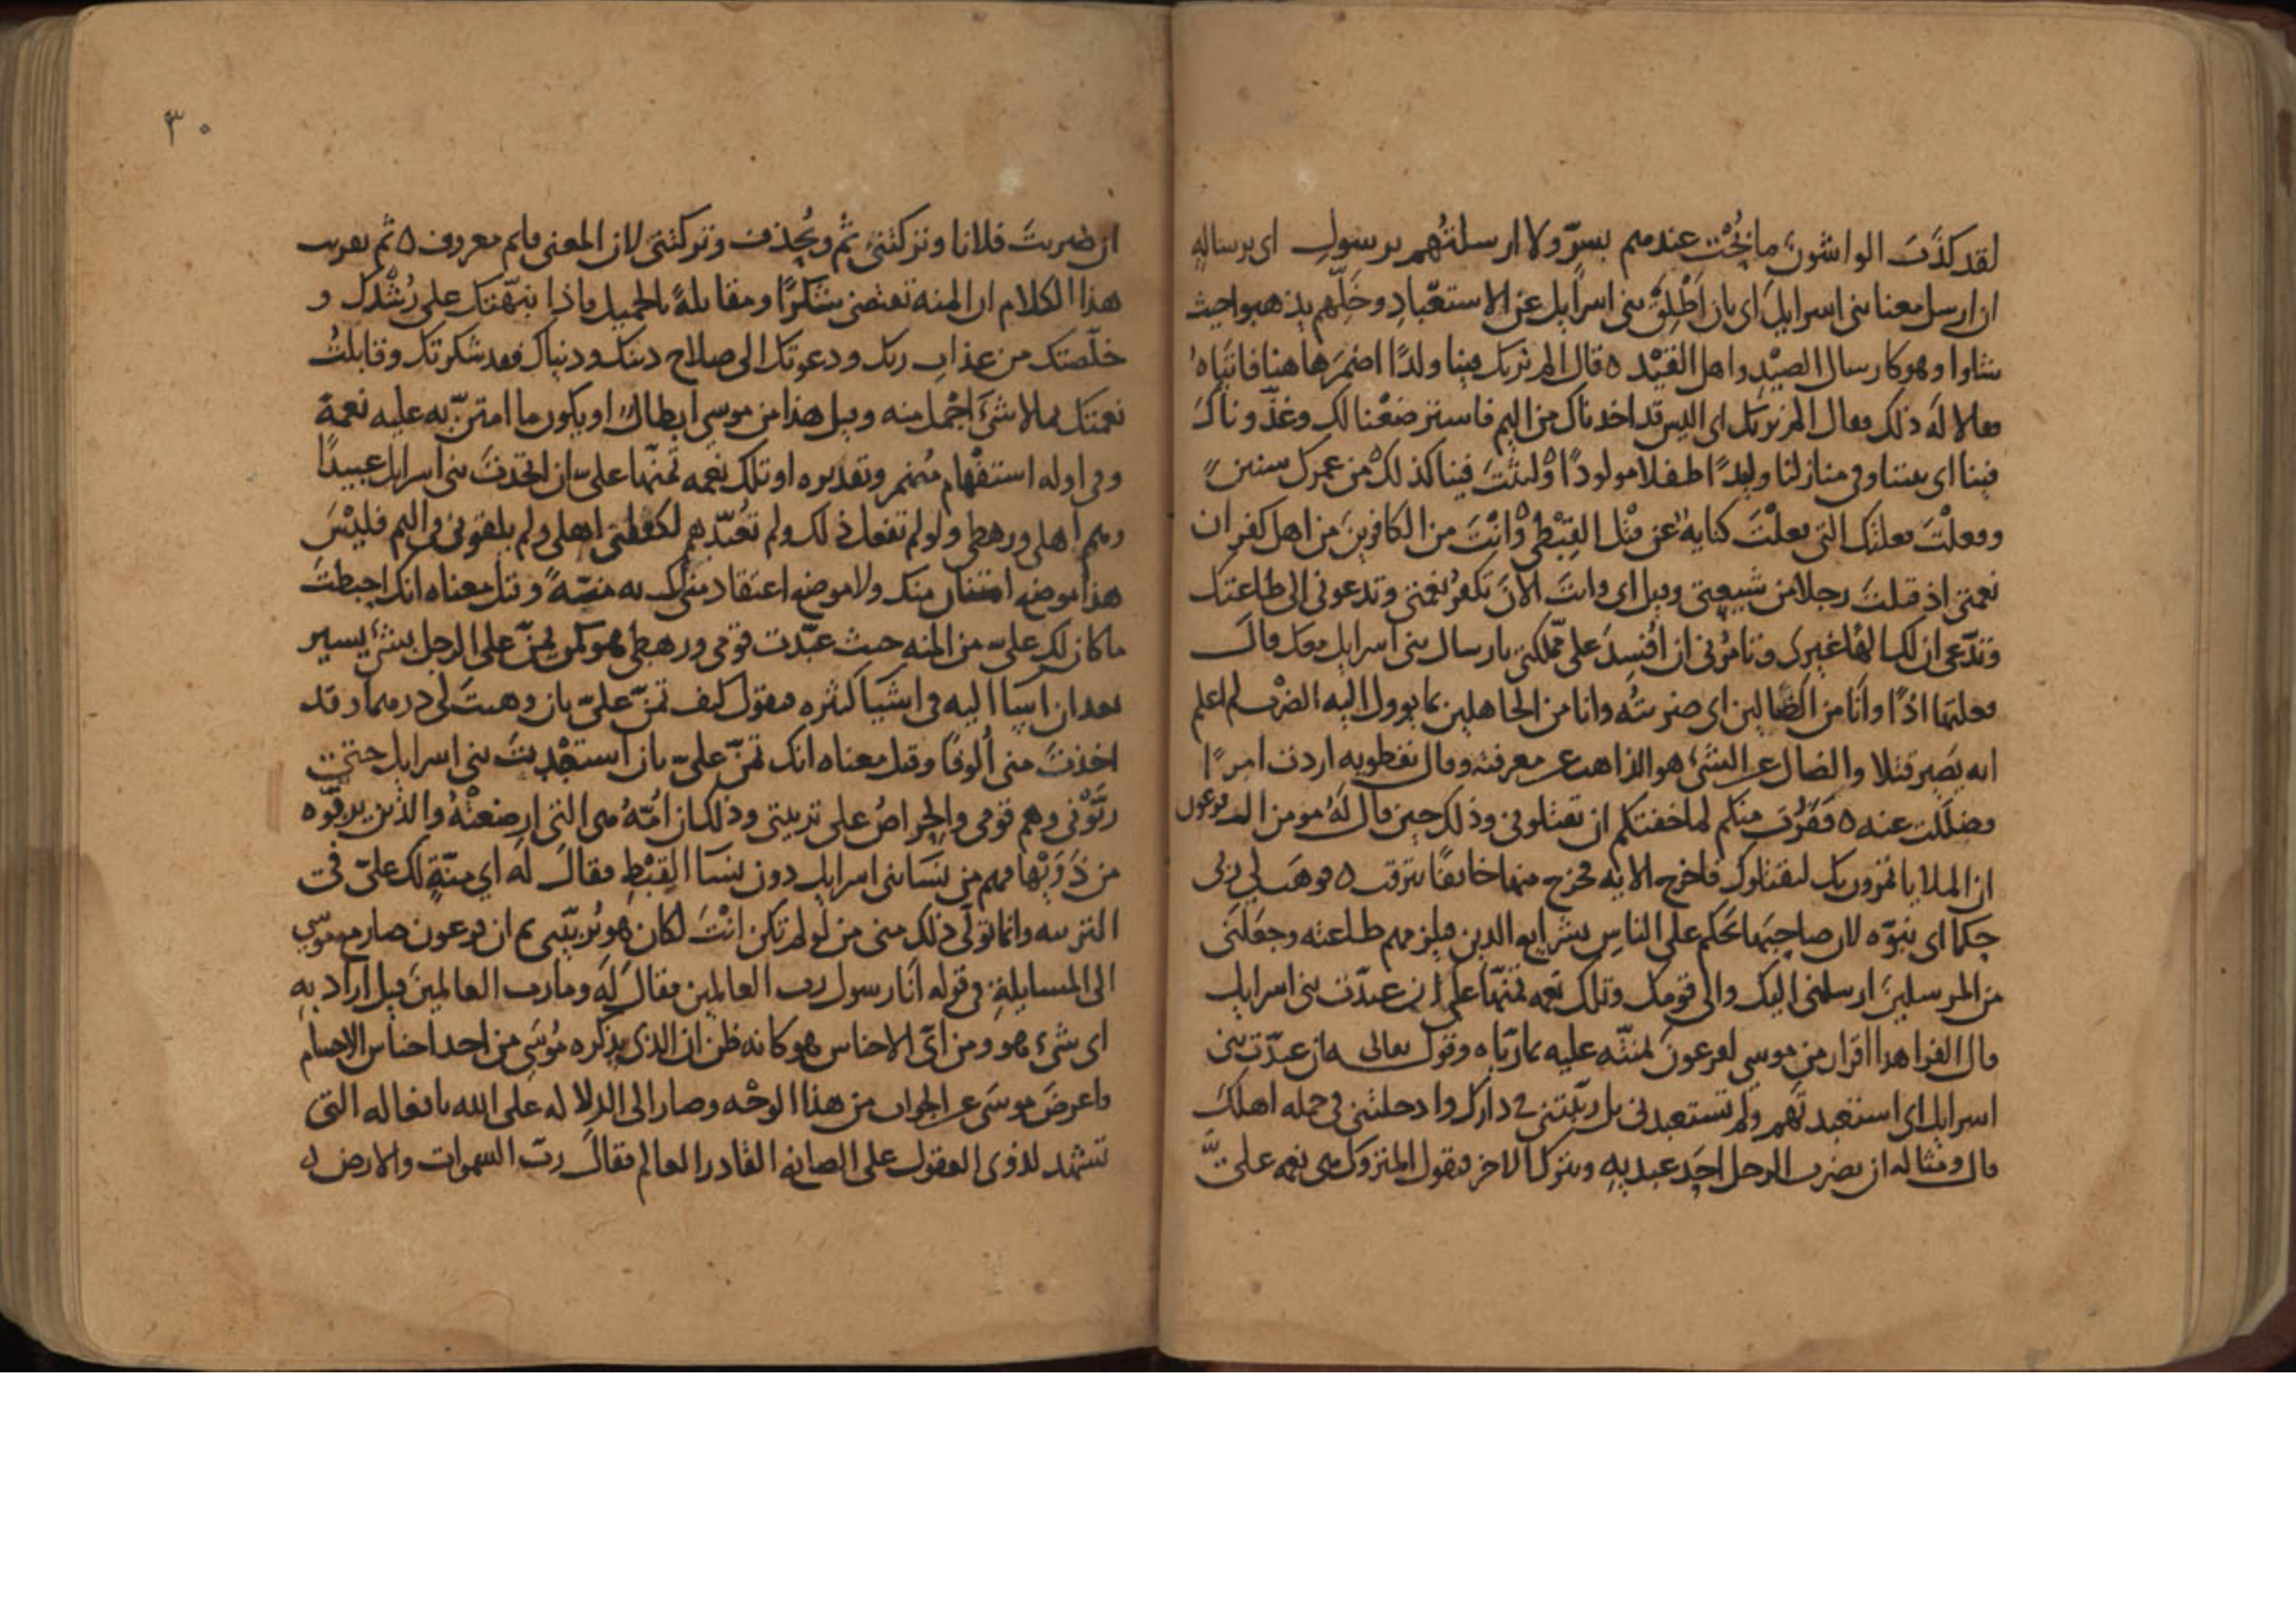 لقد كذَبَ الواشون ما بُحْت عندهم بسرّ ولا ارسلتُهم برسولِ اى برساله
ان ارسل معنا بنى اسرايل اى بان اَطْلِقْ بنى اسرايل عن الاستعباد وخَلِّهم يذهبوا حيث
شاوا وهو كارسال الصيْد واهل القيْد ه قال الم نربك فينا ولدًا اضمَرَها هنا فاتَيَاهُ
فقالا لهُ ذلك فقال الم نربك اى اليس قد اخدناك من اليم فاسترضعْنا لك وغذّوناك
فينا اى بيننا وفى منازلنا وليدًا طفلا مولودًا ولبثْتَ فينا كذلك من عمرك سنين
وفعلْتَ فعلتك التى فعلْتَ كنايه عن قتْل القِبْطى وانْتَ من الكافرينَ من اهل كفران
نعمتى اذ قتلت رجلا من شيعتى وقيل اى وانت الآن تكفر نعمتى وتدعونى الى طاعتك
وتدّعى ان لك الهًا غيرى وتامُرُنى ان افْسِدَ على مملكتى بارسال بنى اسرايل معك قال
فعلتها اذًا وانَا من الضّالين اى ضربتُه وانا من الجاهلين بما يوول اليه الضرْب لم اعلم
انه يَصِير قتلا والضال عن الشىء هو الذاهب عن معرفته وقال نفطويه اردت امرًا
وضللت عنه ه ففَرَرْت منكم لما خفتكم ان تقتلونى وذلك حين قال لهُ مومن ال فرعون
ان الملا ياتمرون بك ليقتلوك فاخرج الايه فخرج منها خائفًا يترقب ه فوهَب لى ربى
حكما اى نبوّه لان صاحبها يَحكم على الناسِ بشرايع الدين فيلزمهم طاعته وجعَلَنى
من المرسلين ارسلنى اليك والى قومك وتلك نعمه تمنّها علىّ ان عبدّت بنى اسرايل
قال الفرا هذا اقرار من موسى لفرعون لمنّته عليه بما ربّاه وقوله تعالى ان عبدّت بنى
اسرايل اى استعبدتَهم ولم تستعبدنى بل ربّيتنى فى دارك وادخلتنى فى جمله اهلكَ
قال ومثاله ان يضرب الرجل احَد عبديهِ ويترك الاخر فيقول المتروك هى نعمه علىّ
ان ضربتَ فلانا وتركتنى ثُم ويُحذف وتركتنى لان المعنى فلم معروف ه ثم تقريب
هذا الكلام ان المنه تقتضى شكرًا ومقابلةً بالجميل فاذا نبّهتك على رُشْدك و
خلّصتك من عذاب ربك ودعوتك الى صلاح دينك ودنياك فقد شكرتك وقابلتُ
نعمتك بما لا شئَ اجْمل منه وقيل هذا من موسى ابطال او يكون ما امتنّ به عليه نعمة
وفى اوله استفْهام مُضمر وتقديره اوتلك نعمه تمنّها علىّ ان اتخذتَ بنى اسرايل عبيدًا
وهم اهلى ورهطى ولو لم تفعل ذلك ولم تعبّدهم لكفلنى اهلى ولم يلقونى فى اليم فليْسَ
هذا موضع امتنان منك ولا موضع اعتقاد منى لك به منّةً وقيل معناه انك احبطتَ
ما كان لك علىّ من المنه حيث عبّدت قومى ورهطى فهو كمن يمنّ على الرجل بشئ يسير
بعد ان اساا اليه فى اشيَا كثيره فيقول كيف تمنّ علىّ بان وهبتَ لى درهما وقد
اخذتَ منى الوفًا وقيل معناه انك تمنّ علىّ بان استعبْدتَ بنى اسرايل حتى
ربَّوْنى وهم قومى والحراصُ على تربيتى وذلك ان امّهُ هى التى ارضعتْهُ والذين
من نَسَا بنى اسرايل دون نسَا القِبْطِ فقال له اي منّةٍ لك علىّ فى
التربيه وانما تولّى ذلك منى من لو لم تكن انتَ لكان هو يُربّينى ثم ان فرعون صار مع موسى
الى المسايلةِ فى قوله انَا رسول رب العالمين فقالَ له وما رب العالمينَ قيل اراد بهِ
اى شىء هو ومن اىّ الاجناس هو كانه ظن ان الذى يذكره مُوسَى من احد اجناس الاجسام
فاعرضَ موسَى عن الجواب من هذا الوجْه وصار الى الدلاله على الله بافعاله التى
تشهد لذوى العقول على الصانع القادر العالم فقالَ ربّ السموات والارض
٣٠